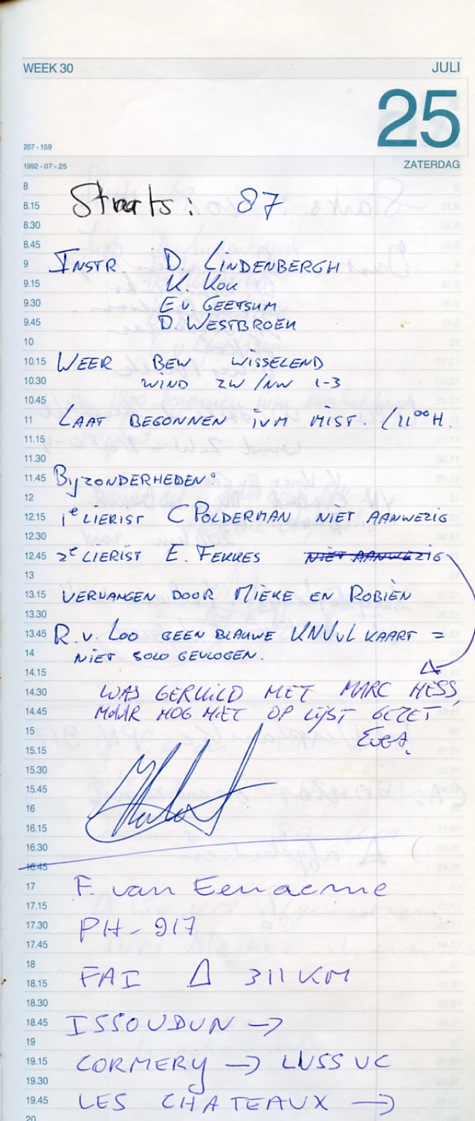 WEEK 30
JULI
25
207 - 159
1992 - 07 - 25
ZATERDAG
8
8.15 Starts: 87
8.30
8.45
9 INSTR. D. LINDENBERGH
9.15 K. KOK
9.30 E v. GEETSUM
9.45 D. WESTBROEK
10
10.15 WEER BEW WISSELEND
10.30 WIND ZW/NW 1-3
10.45
11 LAAT BEGONNEN IVM MIST. /11⁰⁰H.
11.15
11.30
11.45 Byzonderheden:
12
12.15 1e LIERIST C POLDERMAN NIET AANWEZIG
12.30
12.45 2e LIERIST E. FEKKES NIET AANWEZIG
13
13.15 VERVANGEN DOOR MIEKE EN ROBIËN
13.30
13.45 R. v. LOO GEEN BLAUWE KNVvL KAART =
14 NIET SOLO GEVLOGEN.
14.15
14.30 WAS GERUILD MET MARC HESS,
14.45 MAAR NOG NIET OP LIJST GEZET
15
15.15
15.30
15.45
16
16.15
16.30
16.45
17 F. van Eenaeme
17.15
17.30 PH-917
17.45
18
18.15 FAI Δ 311 KM
18.30
18.45 ISSOUDUN →
19
19.15 CORMERY → LUSSUC
19.30
19.45 LES CHATEAUX →
20